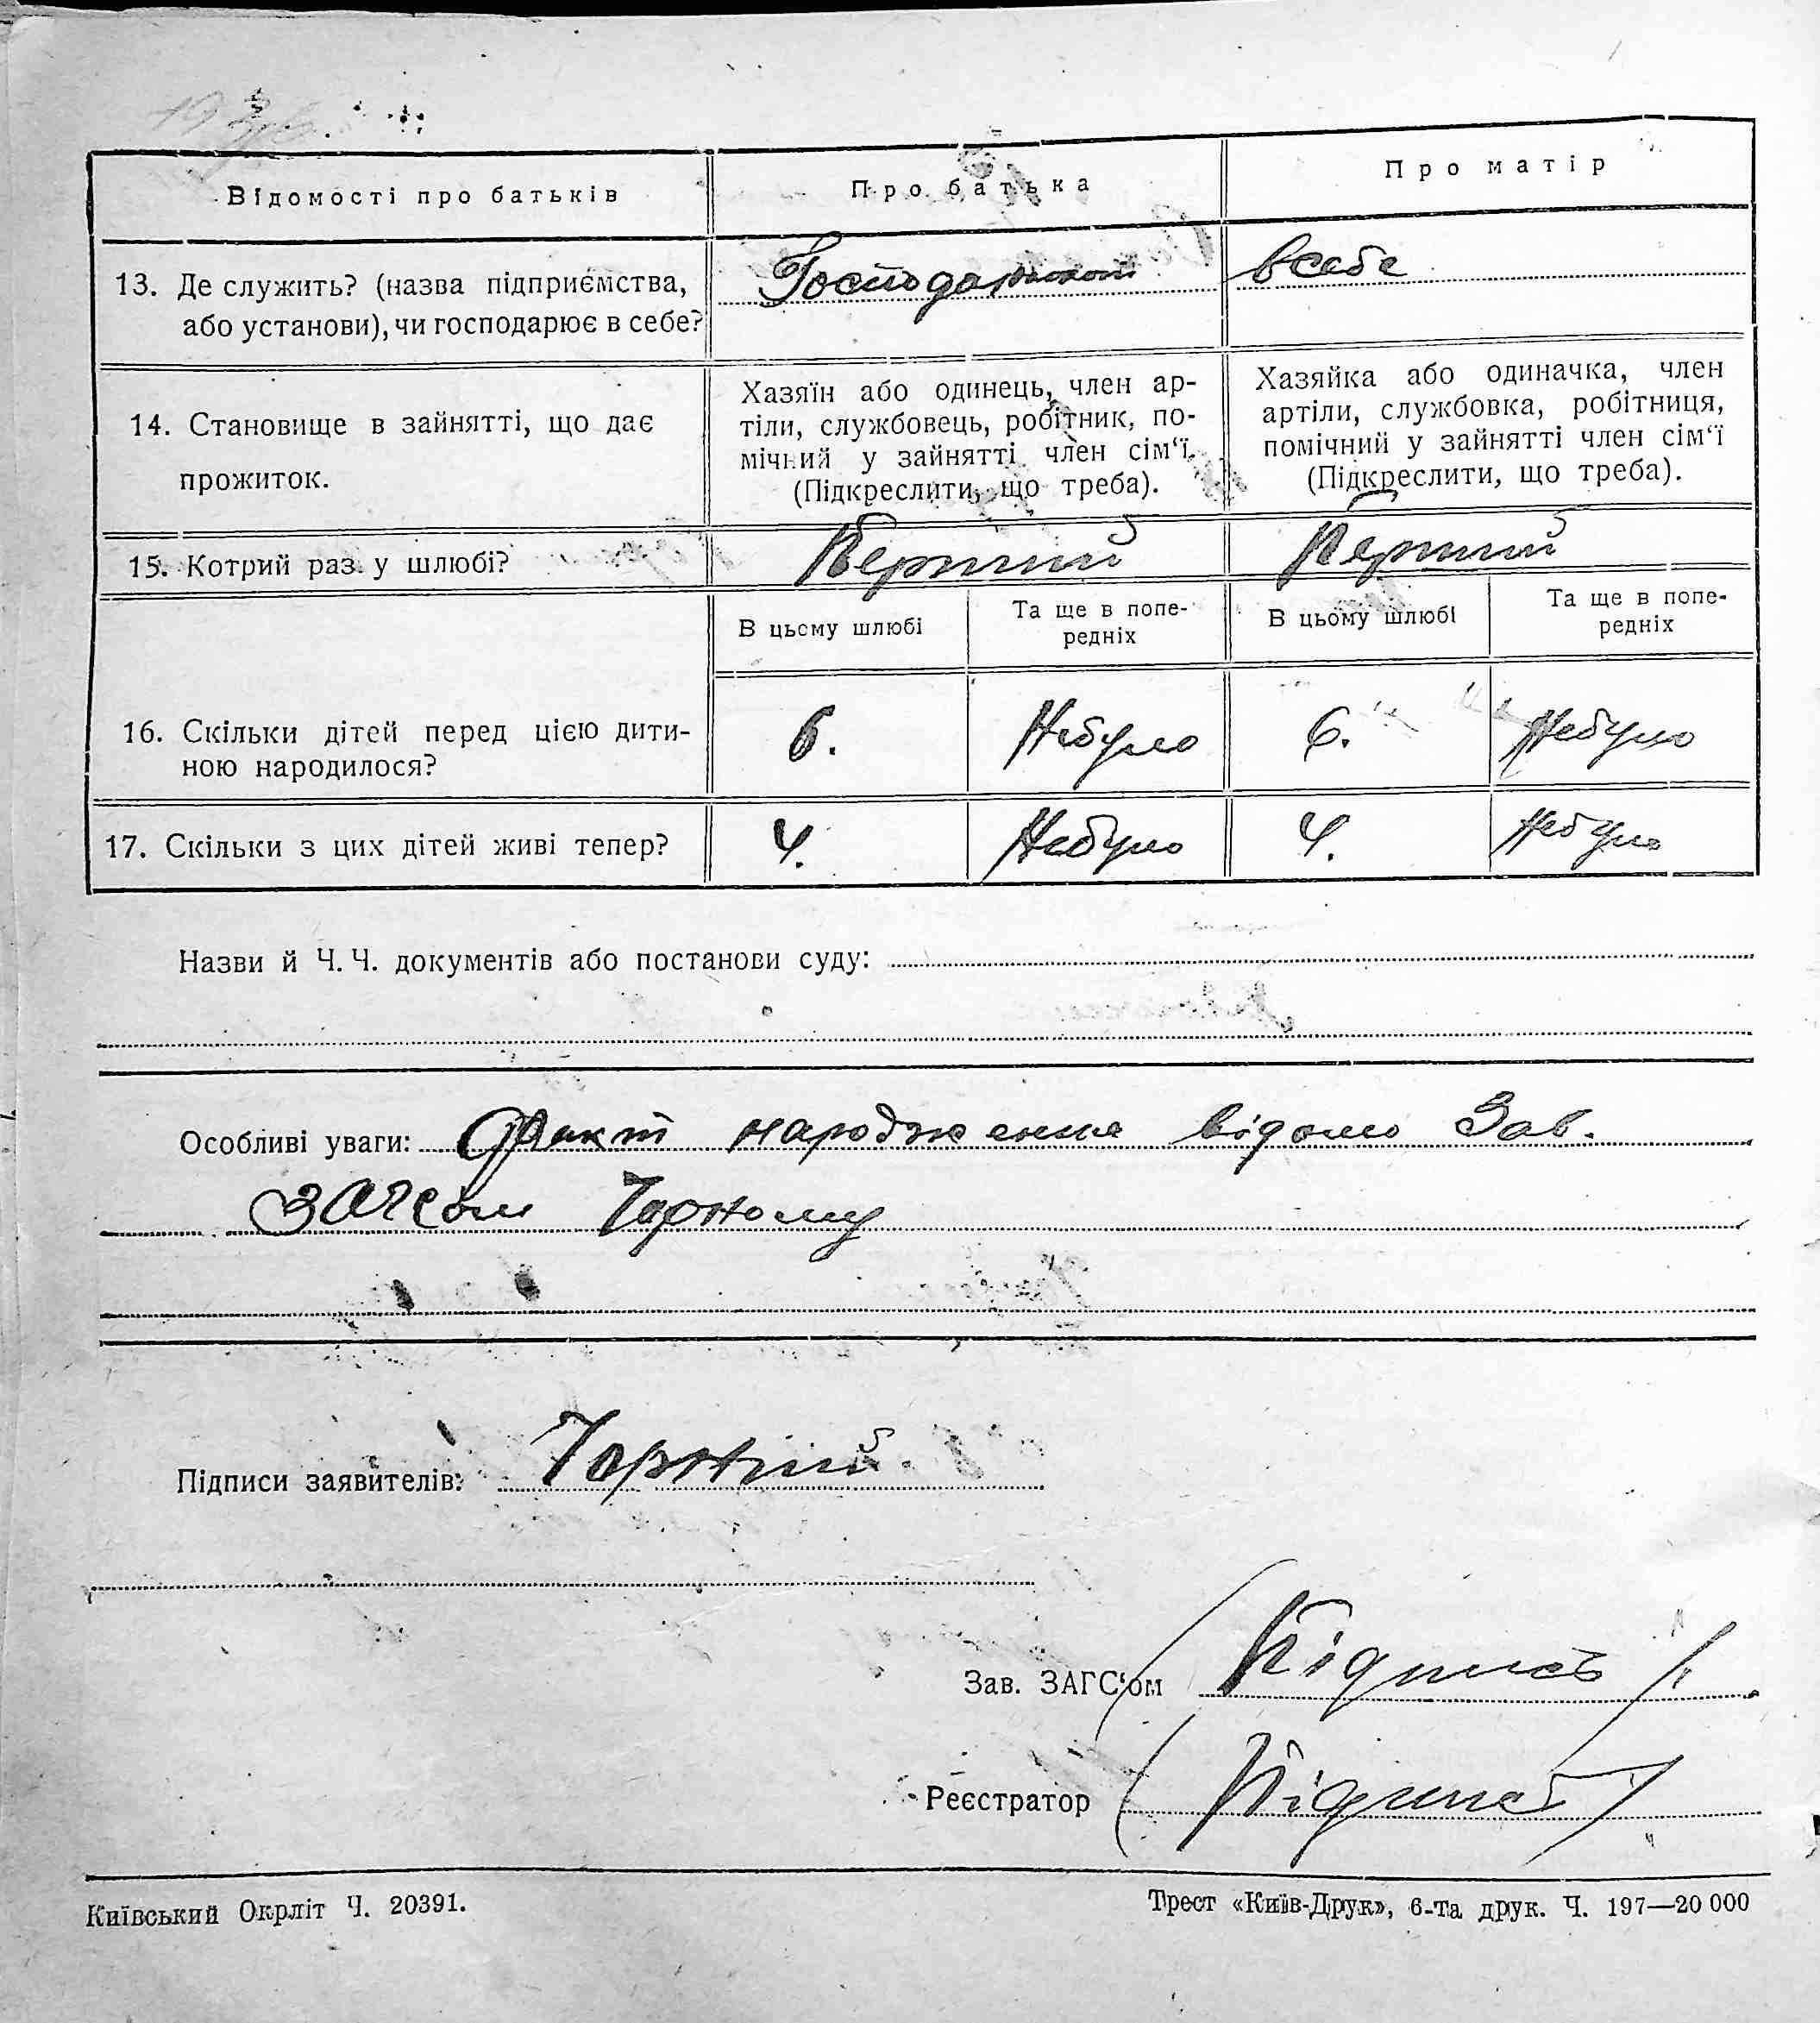 Відомості про батьків
Про батька
Про матір
13. Де служить? (назва підприємства, або установи), чи господарює в себе?
Господарюют
всебе
14. Становище в зайнятті, що дає прожиток.
Хазяїн або одинець, член ар-
тіли, службовець, робітник, по-
мічний у зайнятті член сім‘ї.
(Підкреслити, що треба).
Хазяйка або одиначка, член
артіли, службовка, робітниця,
помічний у зайнятті член сім‘ї
(Підкреслити, що треба).
15. Котрий раз у шлюбі?
Перший
Перший
В цьому шлюбі
Та ще в попе-
редніх
В цьому шлюбі
Та ще в попе-
редніх
16. Скільки дітей перед цією дити-
ною народилося?
6.
Небуло
6.
Небуло
17. Скільки з цих дітей живі тепер?
4.
Небуло
4.
Небуло
Назви й Ч. Ч. документів або постанови суду:
Особливі уваги: Факт народження відомо Зав.
загсом Чорному
Підписи заявителів: Чорний.
Зав. ЗАГС‘ом (Підпись)
Реєстратор (Підпись)
Київський Окрліт Ч. 20391.
Трест «Київ-Друк», 6-та друк. Ч. 197—20 000